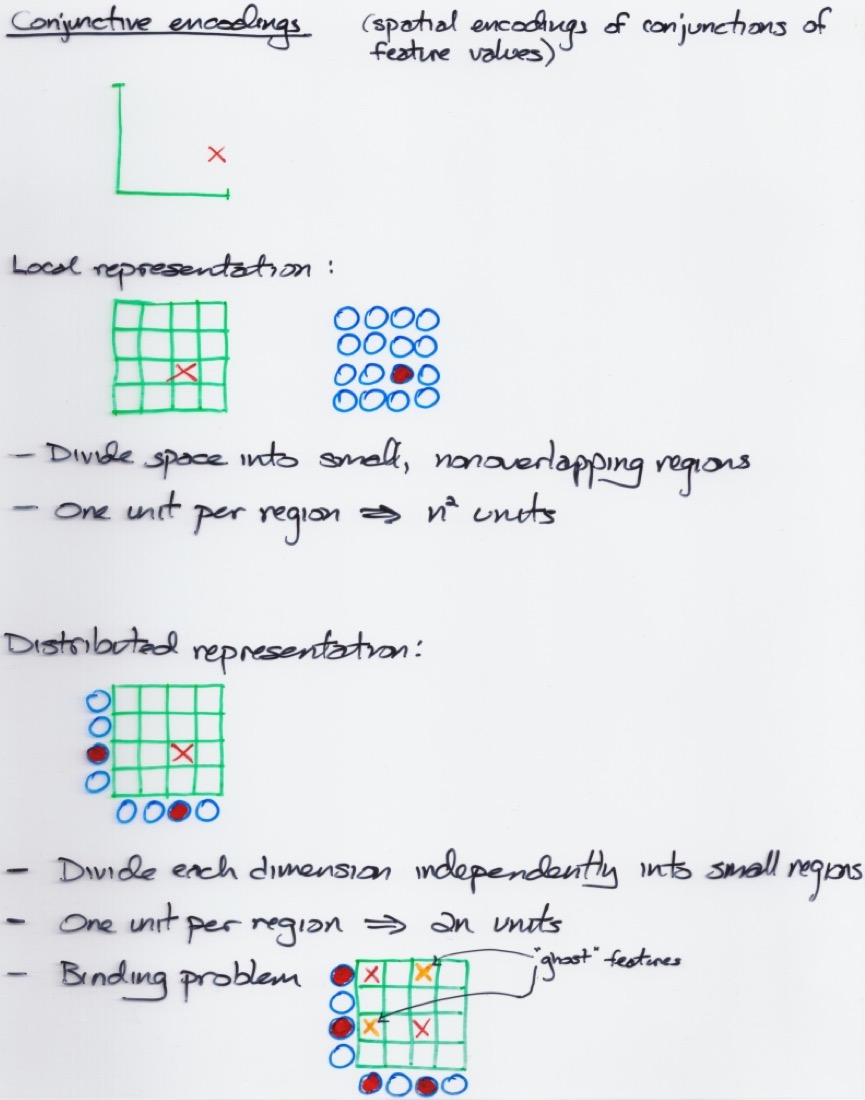 Conjunctive encodings (spatial encodings of conjunctions of
feature values)
Local representation:
- Divide space into small, nonoverlapping regions
- One unit per region ⇒ n² units
Distributed representation:
- Divide each dimension independently into small regions
- One unit per region ⇒ 2n units
- Binding problem
"ghost" features